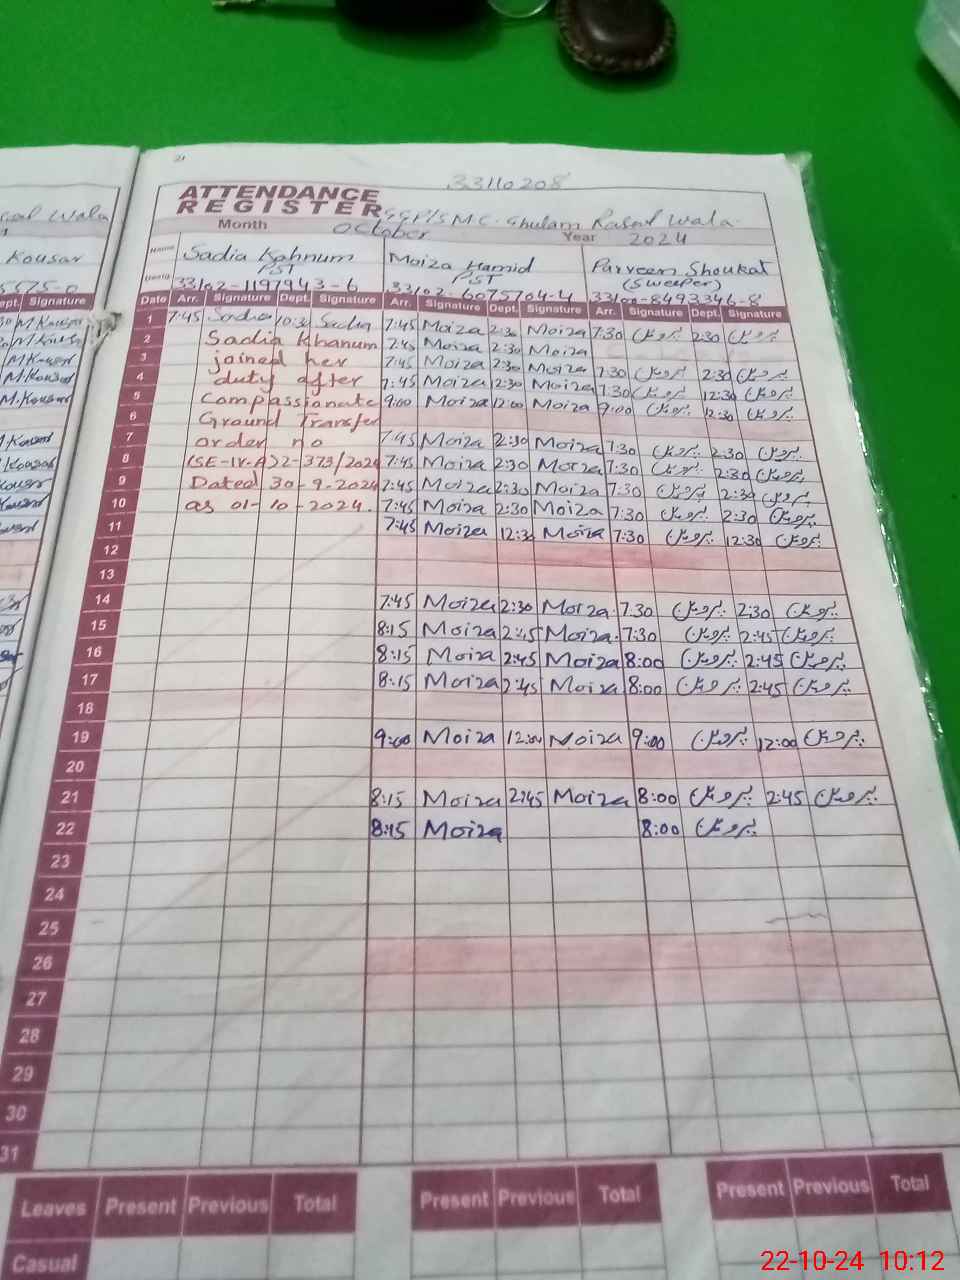 21
33110208
ATTENDANCE
REGISTER GGP/S M.C. Ghulam Rasool Wala.
Month October Year 2024
Name Sadia Kahnum Moiza Hamid Parveen Shoukat
PST PST (Sweeper)
33102-1197943-6 33102-6075704-4 33100-8493346-8
Date Arr. Signature Dept. Signature Arr. Signature Dept. Signature Arr. Signature Dept. Signature
1 7:45 Sadia 10:30 Sadia 7:45 Moiza 2:30 Moiza 7:30 پروین 2:30 پروین
2 Sadia Khanum 7:45 Moiza 2:30 Moiza
3 joined her 7:45 Moiza 2:30 Moiza 7:30 پروین 2:30 پروین
4 duty after 7:45 Moiza 12:30 Moiza 7:30 پروین 12:30 پروین
5 Compassionate 9:00 Moiza 12:00 Moiza 9:00 پروین 12:30 پروین
6 Ground Transfer
7 order no 7:45 Moiza 2:30 Moiza 7:30 پروین 2:30 پروین
8 (SE-IV-A)2-373/2024 7:45 Moiza 2:30 Moiza 7:30 پروین 2:30 پروین
9 Dated 30-9-2024 7:45 Moiza 2:30 Moiza 7:30 پروین 2:30 پروین
10 as 01-10-2024. 7:45 Moiza 2:30 Moiza 7:30 پروین 2:30 پروین
11 7:45 Moiza 12:30 Moiza 7:30 پروین 12:30 پروین
12
13
14 7:45 Moiza 2:30 Moiza 7:30 پروین 2:30 پروین
15 8:15 Moiza 2:45 Moiza 7:30 پروین 2:45 پروین
16 8:15 Moiza 2:45 Moiza 8:00 پروین 2:45 پروین
17 8:15 Moiza 2:45 Moiza 8:00 پروین 2:45 پروین
18
19 9:00 Moiza 12:00 Moiza 9:00 پروین 12:00 پروین
20
21 8:15 Moiza 2:45 Moiza 8:00 پروین 2:45 پروین
22 8:15 Moiza 8:00 پروین
23
24
25
26
27
28
29
30
31
Leaves Present Previous Total Present Previous Total Present Previous Total
Casual
22-10-24 10:12